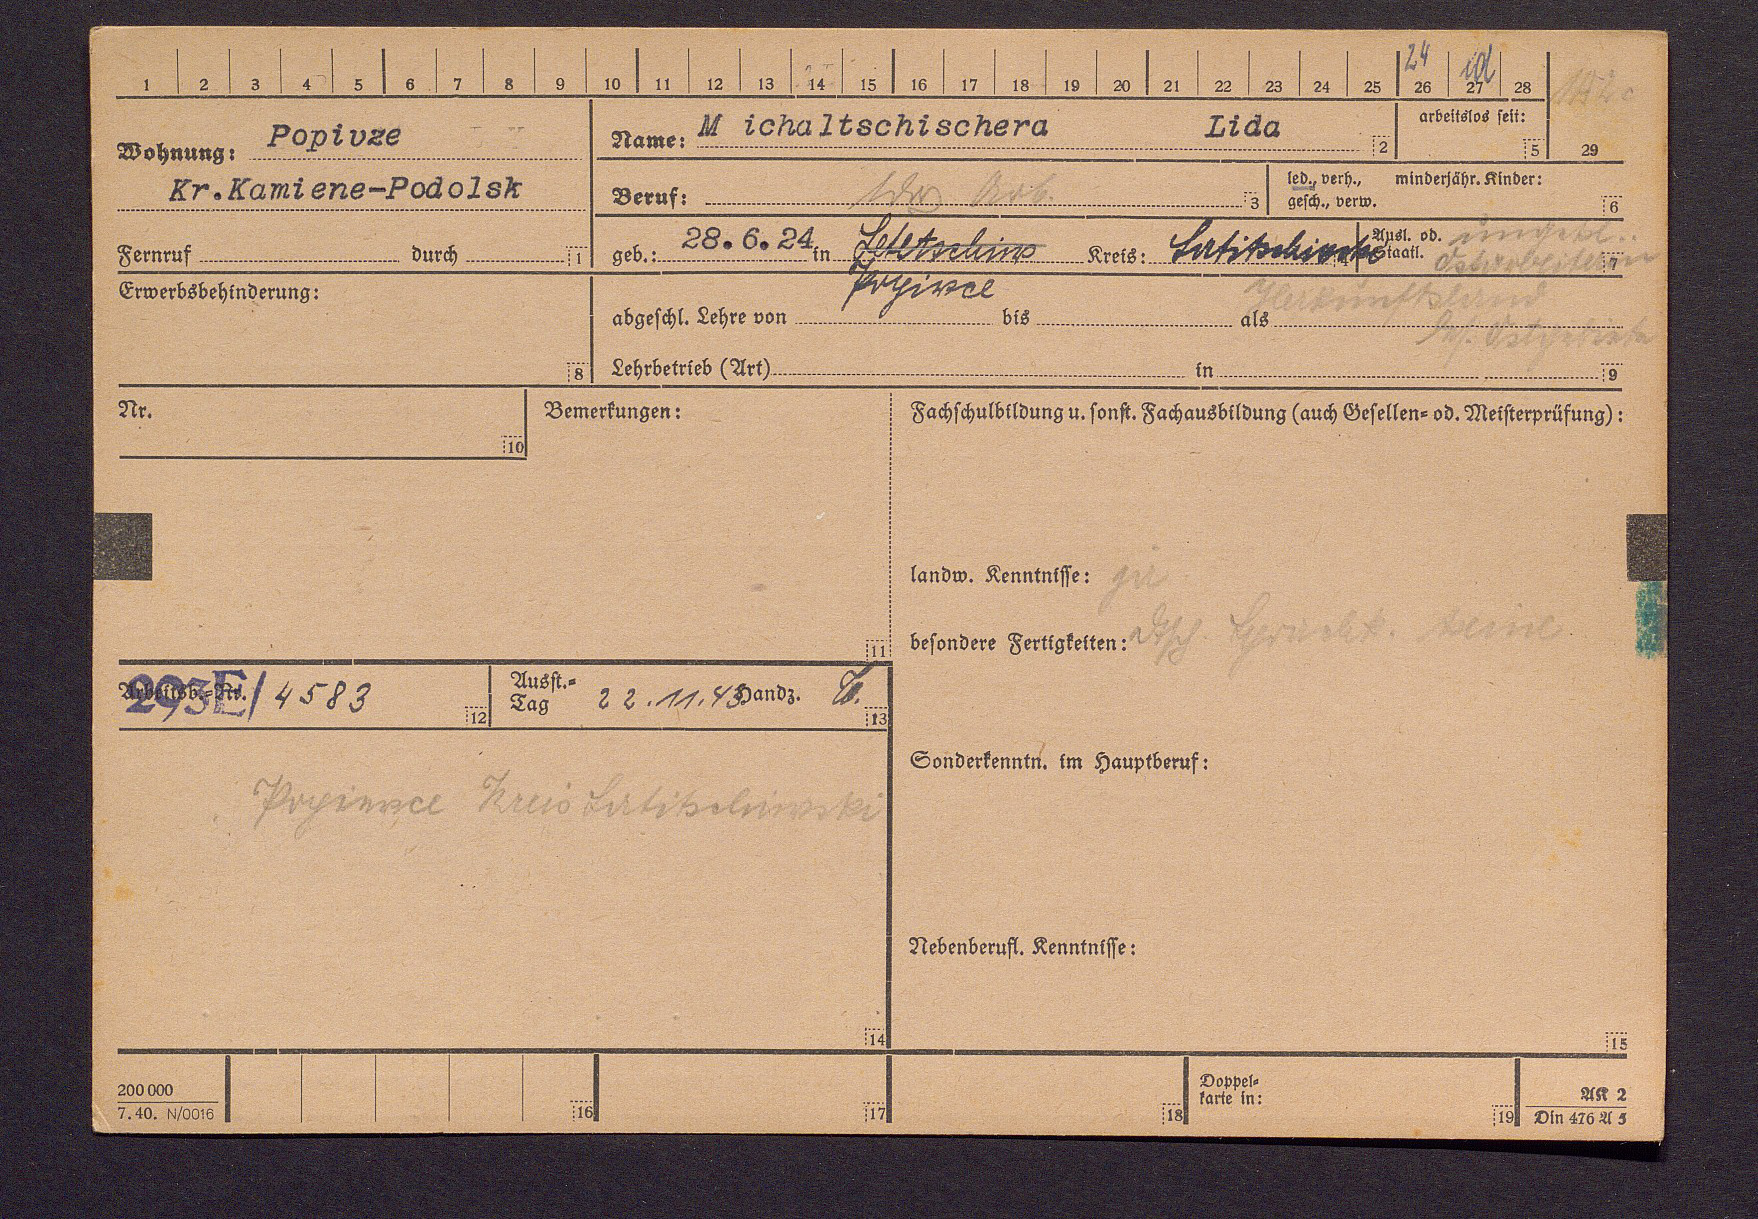 1 2 3 4 5 6 7 8 9 10 11 12 13 14 15 16 17 18 19 20 21 22 23 24 25 26 27 28
24 id
Wohnung: Popivze
Kr.Kamiene-Podolsk
Name: M ichaltschischera Lida 2
arbeitslos seit: 5
29
Beruf: Arb. 3
led., verh., gesch., verw.
minderjähr. Kinder: 6
Fernruf durch 1
geb.: 28.6.24 in Letetschiw Kreis: Latitschiwski
Popivce
Ausl. od. Staatl. ungekl. Ostarbeiterin 7
Herkunftsland
bes. Ostgebiete
Erwerbsbehinderung: 8
abgeschl. Lehre von bis als
Lehrbetrieb (Art) in 9
Nr. 10
Bemerkungen: 11
Fachschulbildung u. sonst. Fachausbildung (auch Gesellen- od. Meisterprüfung):
landw. Kenntnisse: ja
besondere Fertigkeiten: dtsch. Sprachk. keine
Arbeitsb.-Nr. 293E/ 4583 12
Ausst.-Tag 22.11.43 Handz. 13
Popiwce Kreis Latitschiwski
14
Sonderkenntn. im Hauptberuf:
Nebenberufl. Kenntnisse:
15
200 000
7. 40. N/0016
16 17 18
Doppel-
karte in: 19
AK 2
Din 476 A 5